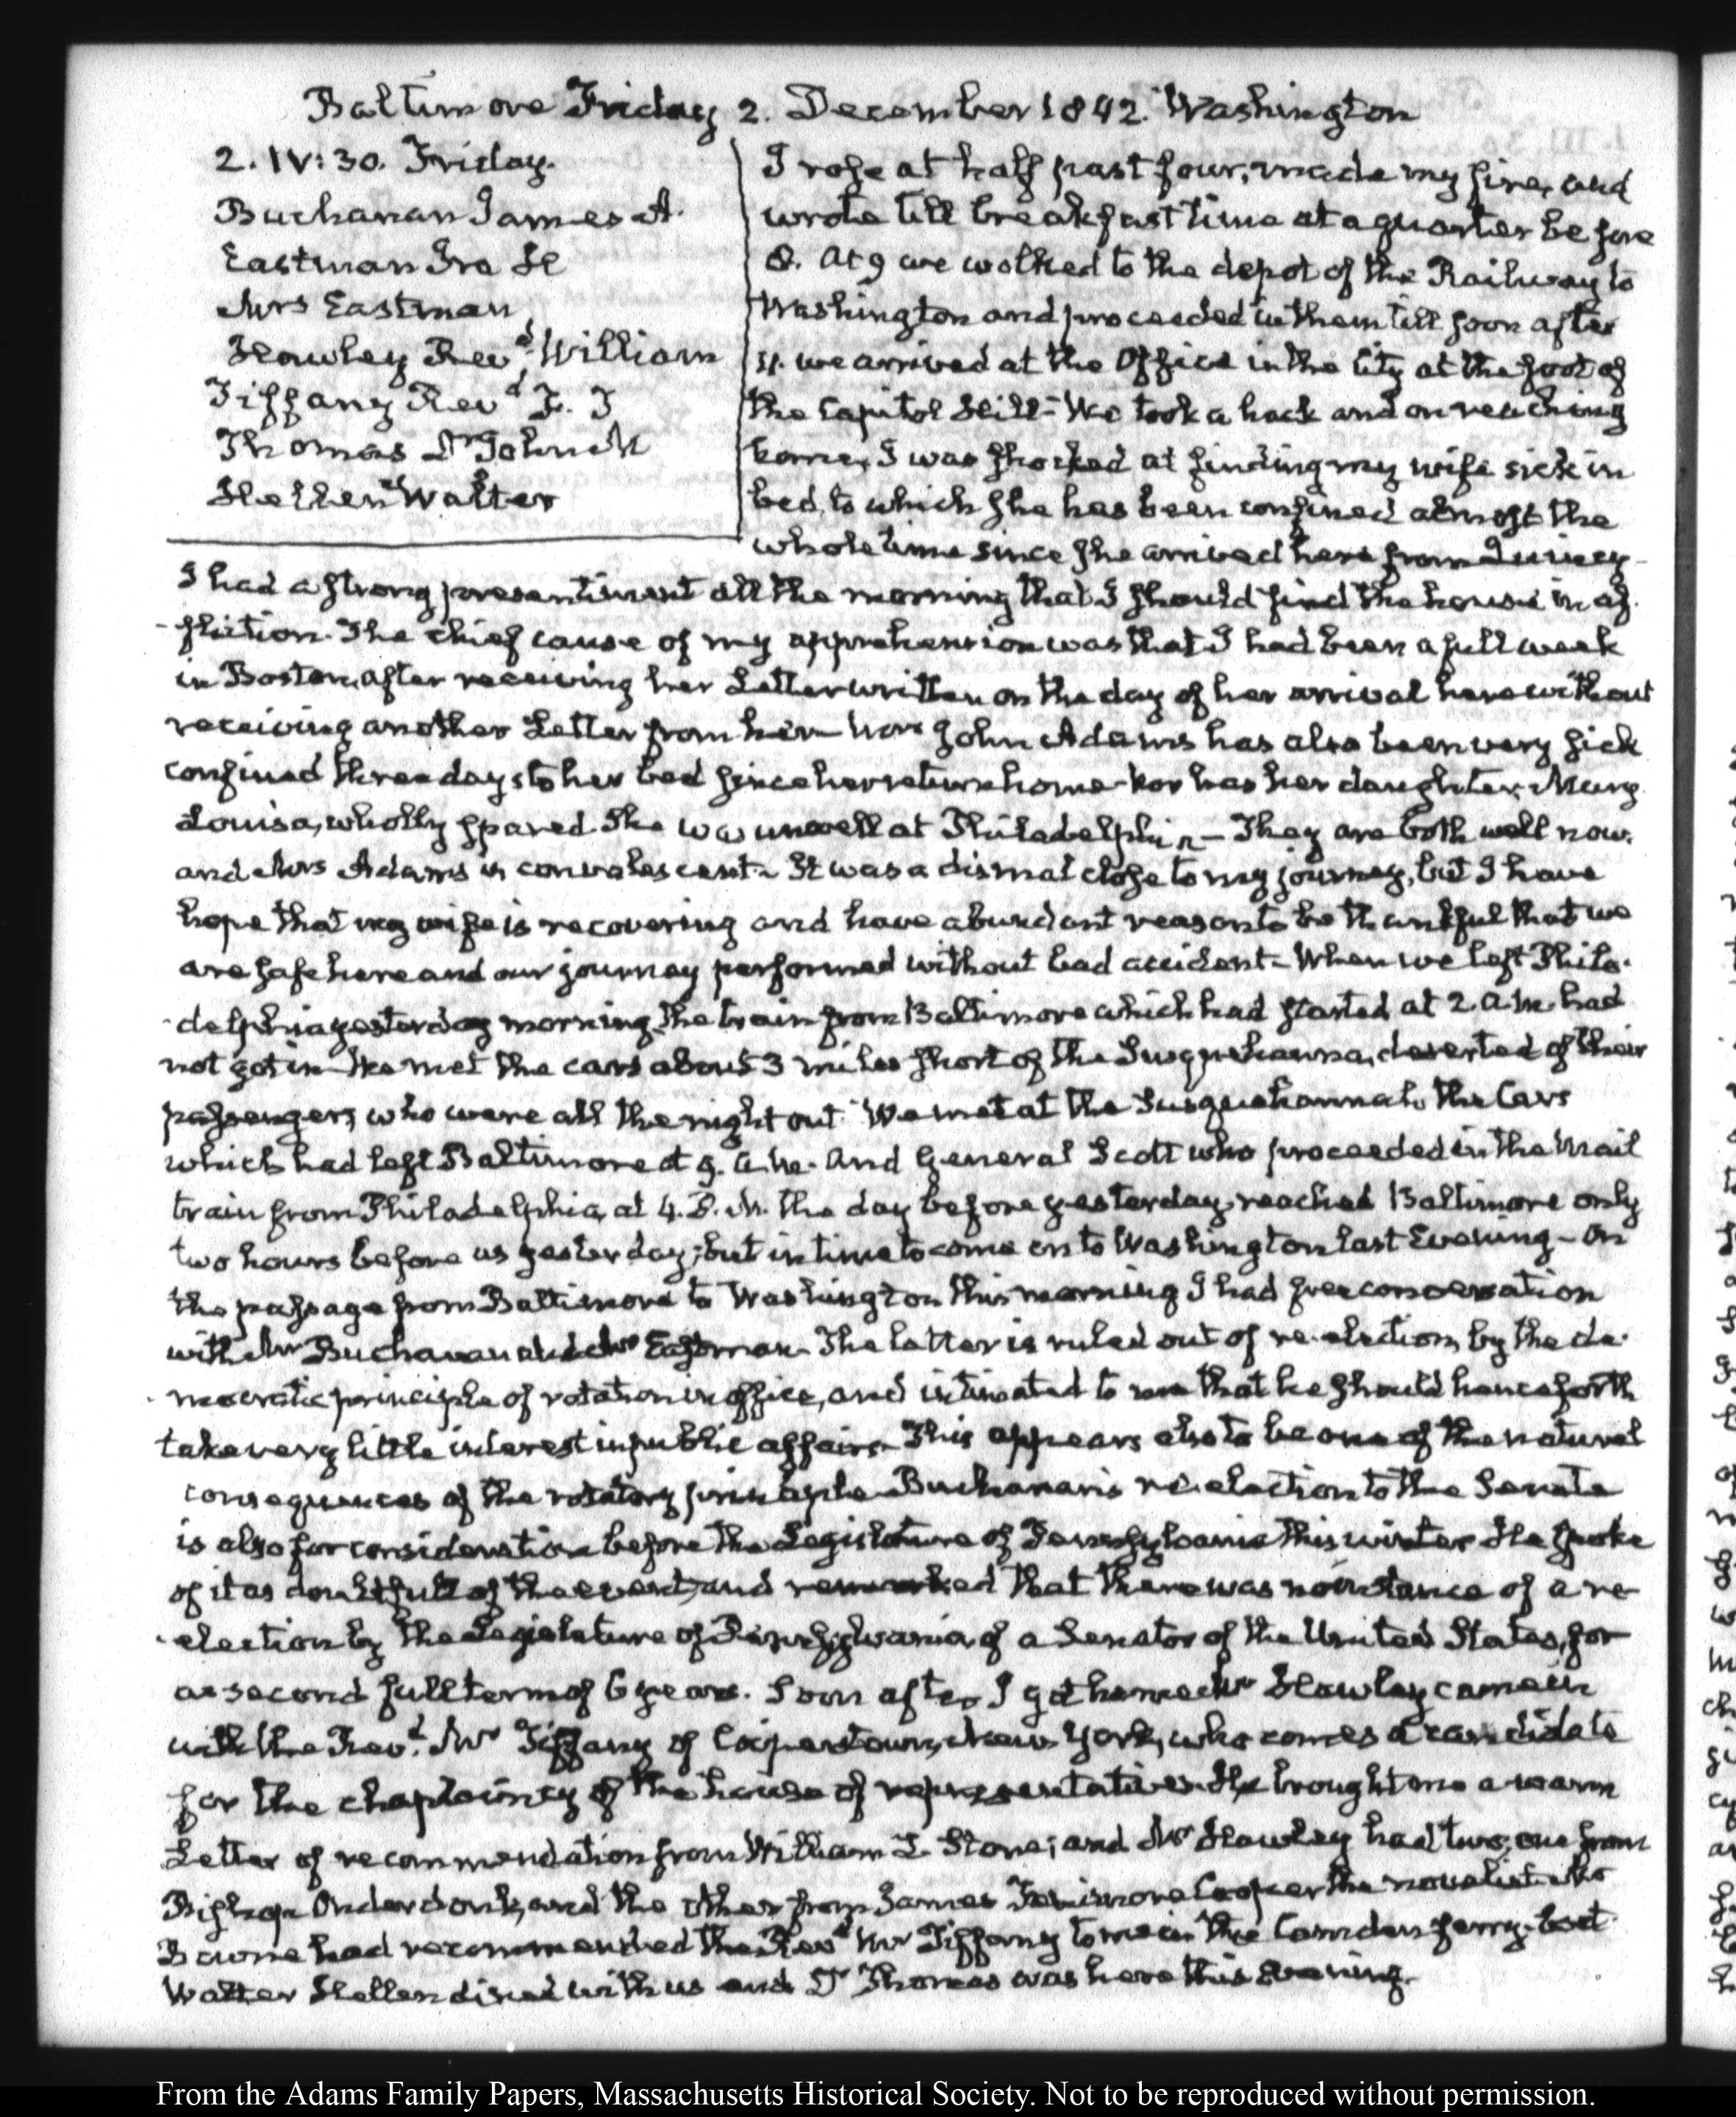 Baltimore Friday 2. December 1842. Washington
2. IV:30. Friday.
Buchanan James
Eastman Ira
Mrs Eastman
Hawley Revd. William
Tiffany Revd
Thomas Dr John M
Hellen Walter
I rose at half past four, made my fire, and
wrote till breakfast time at a quarter before
8. At 9 we walked to the depot of the Railway to
Washington and proceeded in them till soon after
11. we arrived at the Office in the City at the foot of
the Capitol Hill– We took a hack and on reaching
home, I was shocked at finding my wife sick in
bed, to which she has been confined almost the
whole time since she arrived here from Quincy–
I had a strong presentiment all the morning that I should find the house in af-
-fliction. The chief cause of my apprehension was that I had been a full week
in Boston, after receiving her Letter written on the day of her arrival here without
receiving another Letter from her– Mrs John Adams has also been very sick
confined three days to her bed since her return home– Nor has her daughter, Mary
Louisa, wholly spared. She was unwell at Philadelphia– They are both well now.
and Mrs Adams is convalescent– It was a dismal close to my journey, but I have
hope that my wife is recovering and have abundant reason to be thankful that we
are safe here and our journey performed without bad accident– When we left Phila-
-delphia yesterday morning, the train from Baltimore which had started at 2. A.M. had
not got in– We met the cars about 3 miles short of the Susquehanna, deserted of their
passengers, who were all the night out. We met at the Susquehannah the Cars
which had left Baltimore at 9. A.M. And General Scott who proceeded in the Mail
train from Philadelphia, at 4. P.M. the day before yesterday, reached Baltimore only
two hours before us yesterday; but in time to come on to Washington last Evening– On
the passage from Baltimore to Washington this morning I had free conversation
with Mr Buchanan and Mr Eastman– The latter is ruled out of re-election, by the de-
-mocratic principle of rotation in office, and intimated to me that he should henceforth
take very little interest in public affairs– This appears also to be one of the natural
consequences of the rotatory principle– Buchanan's re-election to the Senate
is also for consideration before the Legislature of Pennsylvania this winter. He spoke
of it as doubtful of the event, and remarked that there was no instance of a re-
-election by the Legislature of Pennsylvania, of a Senator of the United States, for
a second full term of 6 years. Soon after I got home Mr Hawley came in
with the Revd. Mr Tiffany of Cooperstown, New York, who comes a candidate
for the chaplaincy of the house of representatives. He brought me a warm
Letter of recommendation from William L. Stone; and Mr Hawley had two; one from
Bishop Onderdonk, and the other from James Fenimore Cooper the novelist.
had recommended the Revd Mr Tiffany to me in the Camden ferry-boat.
Walter Hellen dined with us and Dr Thomas was here this Evening.
From the Adams Family Papers, Massachusetts Historical Society. Not to be reproduced without permission.